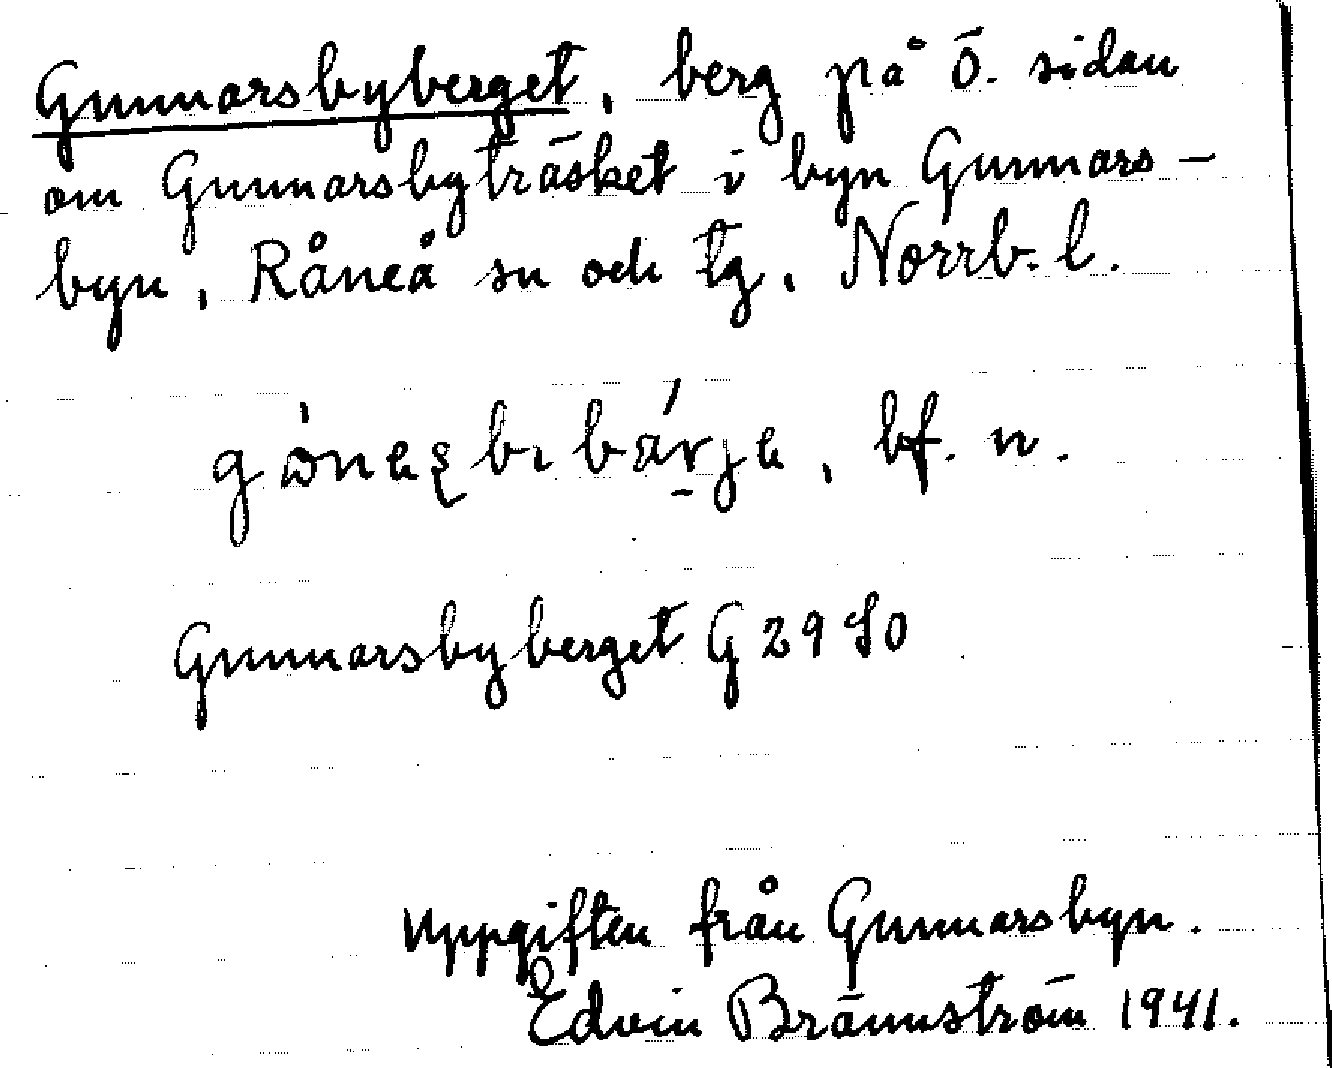 Gunnarsbyberget, berg på ö. sidan
om Gunnarsbyträsket i byn Gunnars-
byn, Råneå sn och tg, Norrb. l.
bf. n.
Gunnarsbyberget G 29 SO
Uppgiften från Gunnarsbyn.
Edvin Brännström 1941.